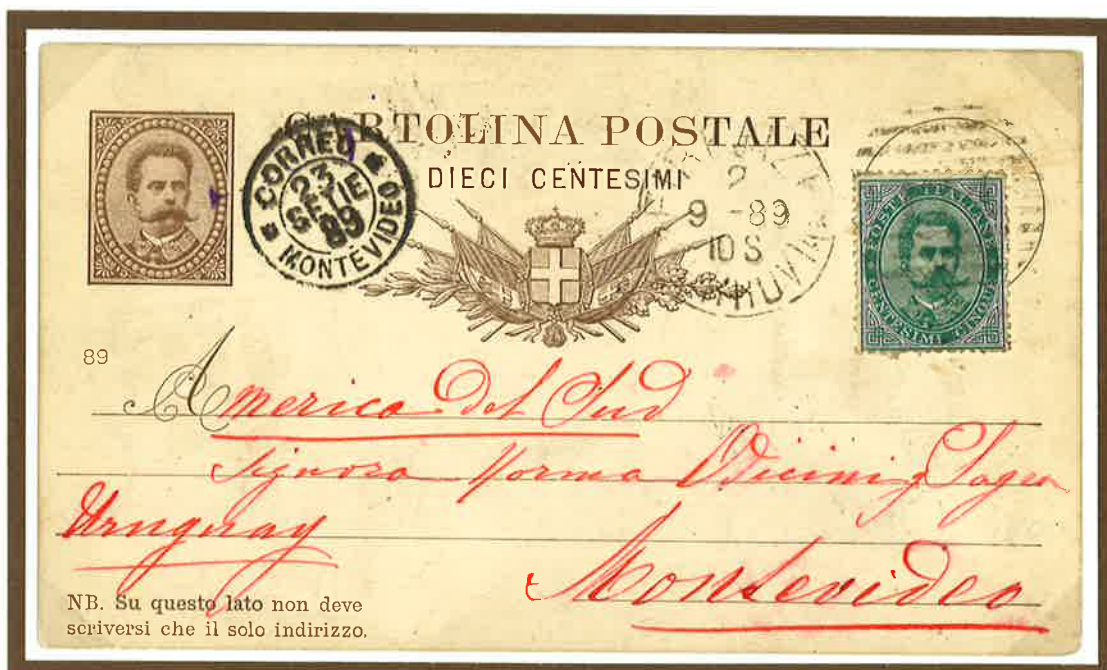 CARTOLINA POSTALE
DIECI CENTESIMI
CORREO
23 E
S 89
MONTEVIDEO
2
9 - 89
10 S
POSTE ITALIANE
CENTESIMI CINQUE
89
America del Sud
Signora Norma Odicini y Sagra
Uruguay
Montevideo
NB. Su questo lato non deve
scriversi che il solo indirizzo.